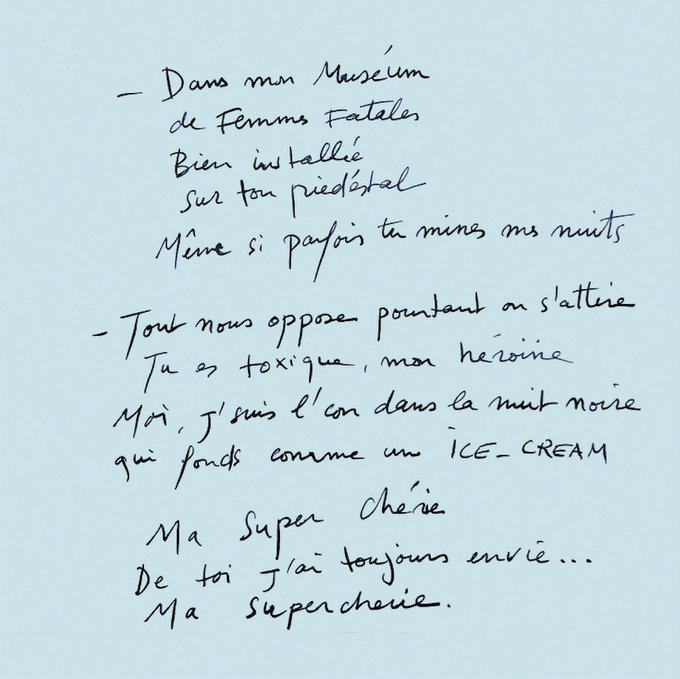 – Dans mon Muséum
de Femmes Fatales
Bien installée
sur ton piédéstal
Même si parfois tu mines mes nuits
– Tout nous oppose pourtant on s'attire
Tu es toxique, mon héroïne
Moi, j'suis l'con dans la nuit noire
qui fonds comme un ICE-CREAM
Ma super chérie
De toi j'ai toujours envie...
Ma supercherie.